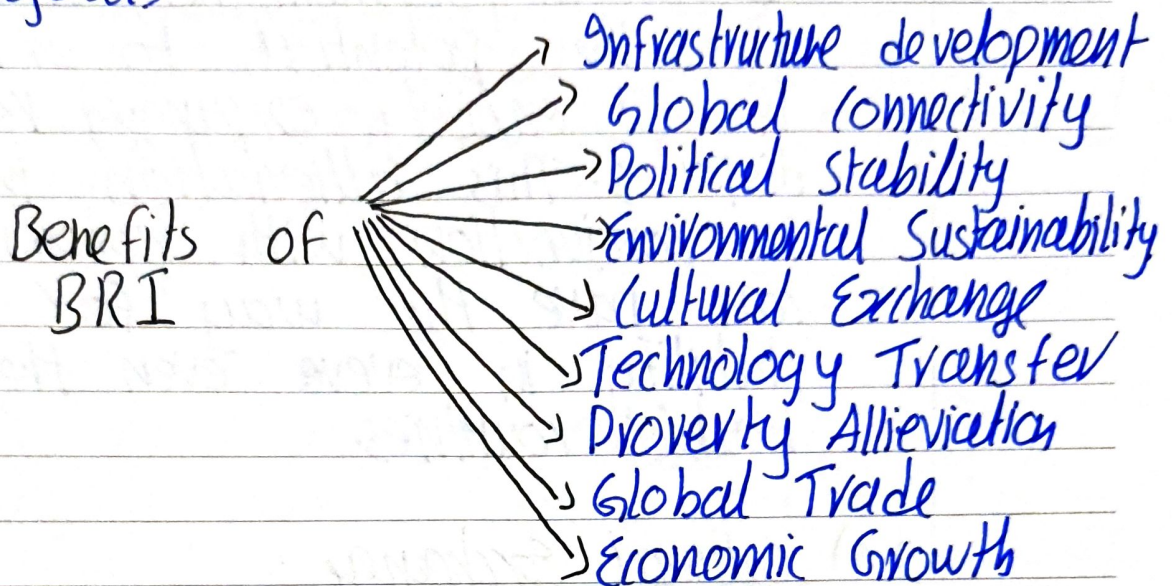 Infrastructure development
Global Connectivity
Political Stability
Benefits of
Environmental Sustainability
BRI
Cultural Exchange
Technology Transfer
Proverty Allieviation
Global Trade
Economic Growth